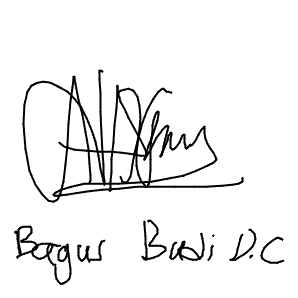 Bagus Budi D.C